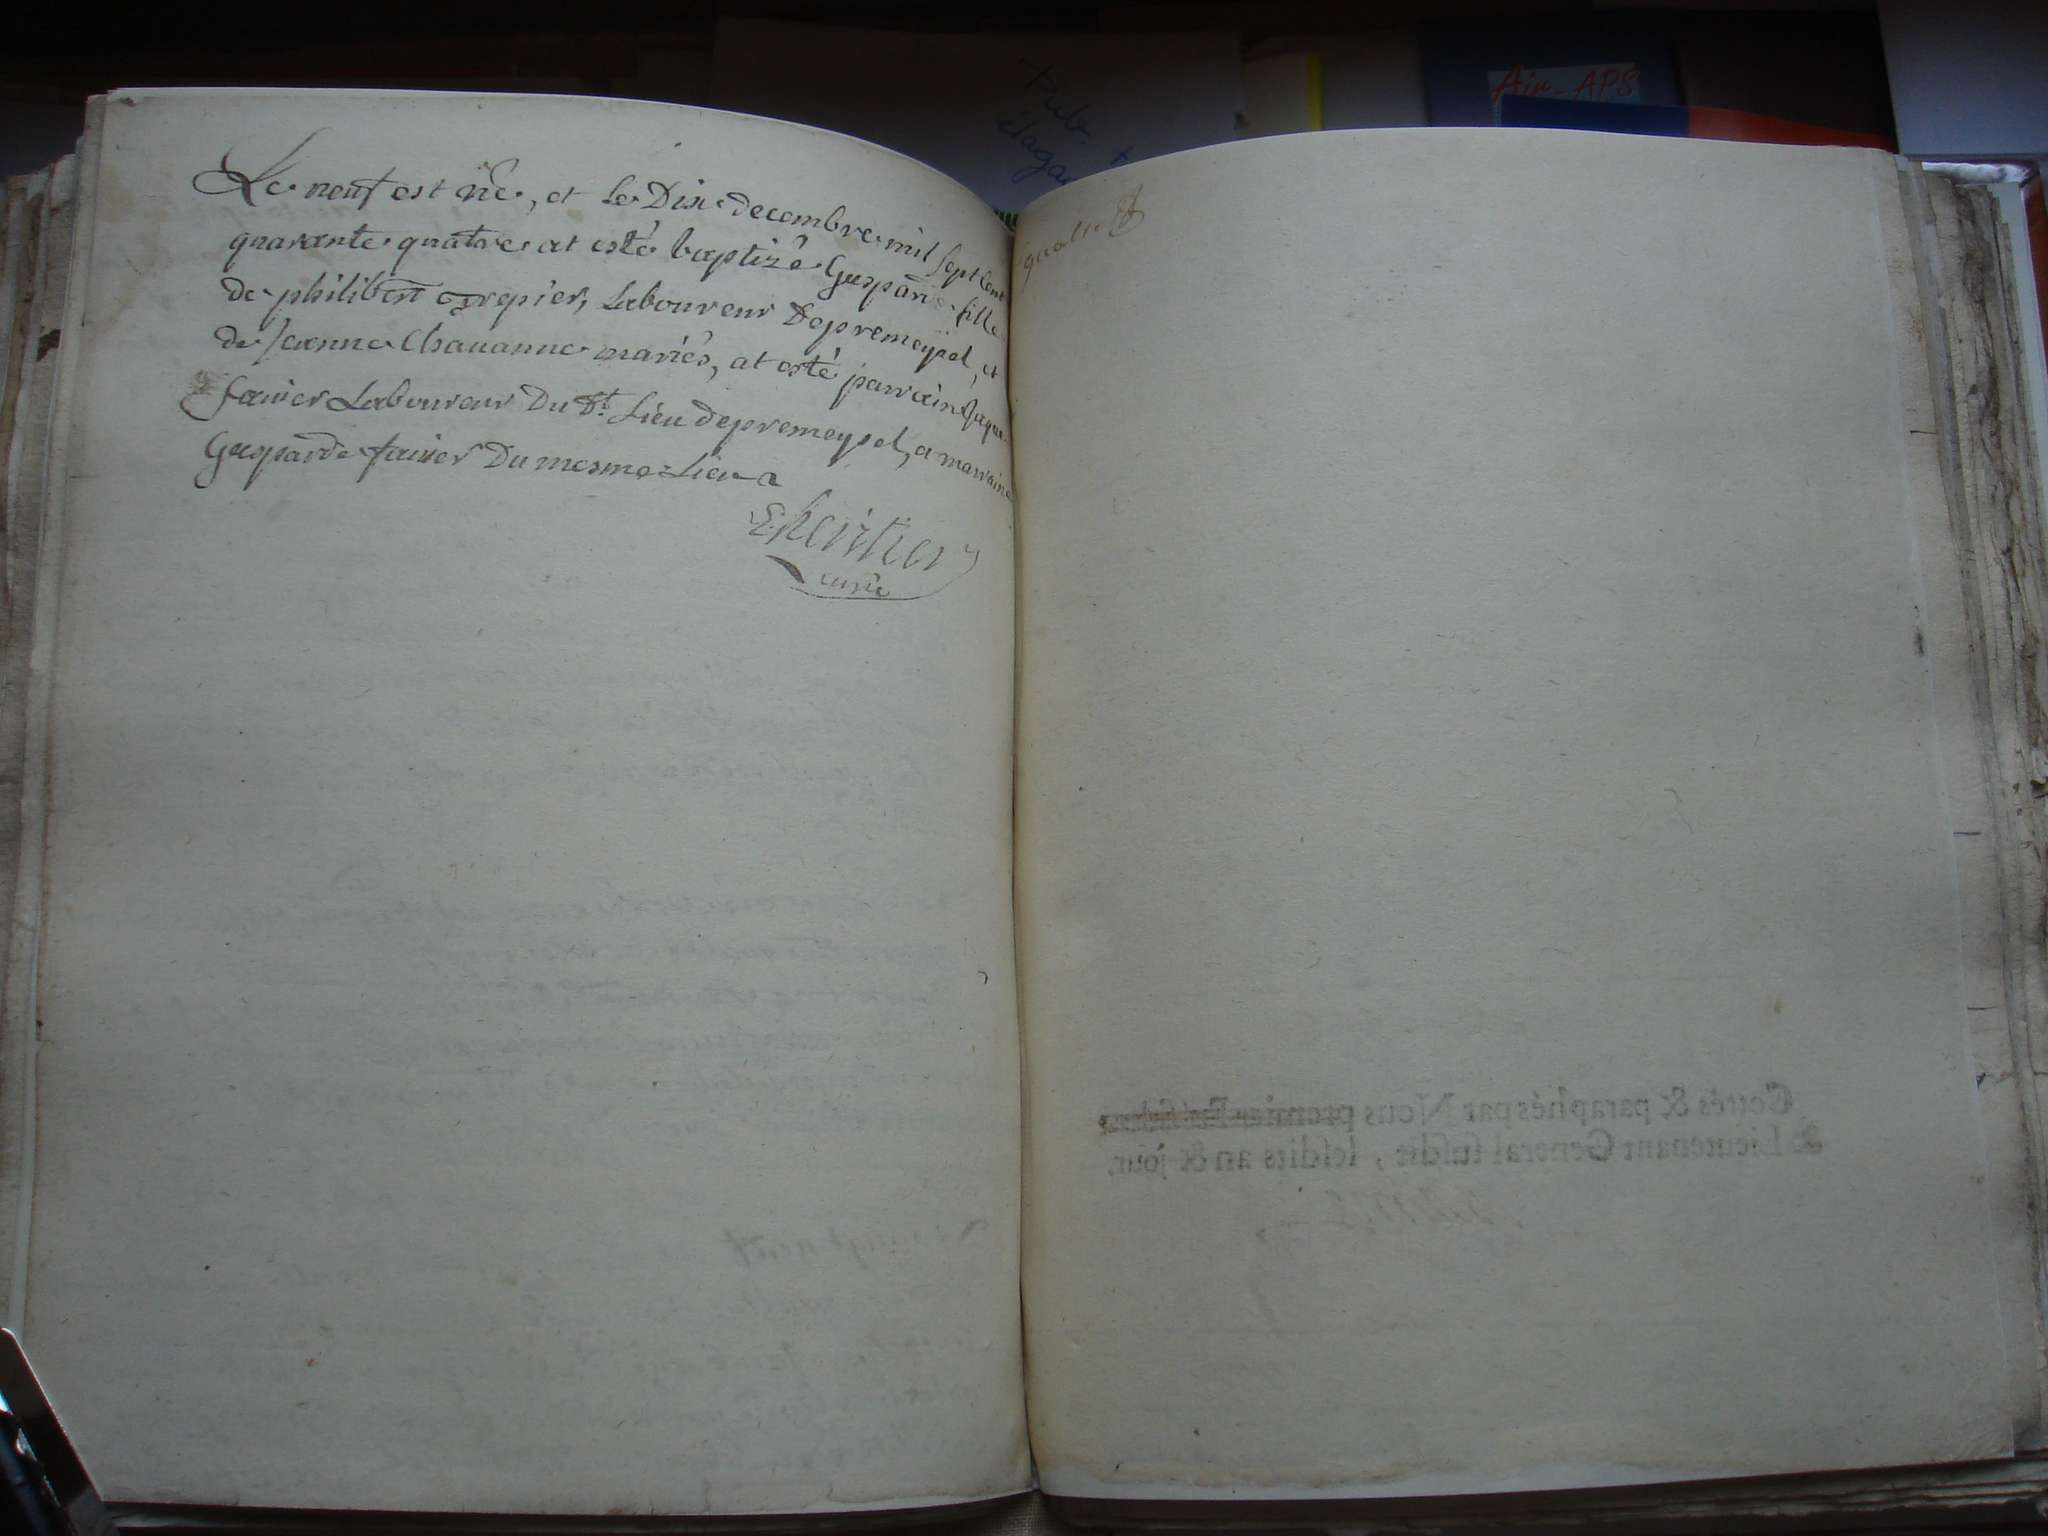 Le neuf est né, et le Dix decembre mil sept cent
quarante quatre at esté baptizé Gasparde fille
de philibert Grepier, Laboureur Depremeysel, et
de Jeanne Chauanne mariés, at esté parrain Jaque
fauier Laboureur Du Dt. Lieu depremeysel, a marraine
Gasparde fauier Du mesme Lieu
Lheritier
curé
Cottés & paraphés par Nous premier
& Lieutenant General susdit, lesdits an & jour.
Pub
Ain-APS